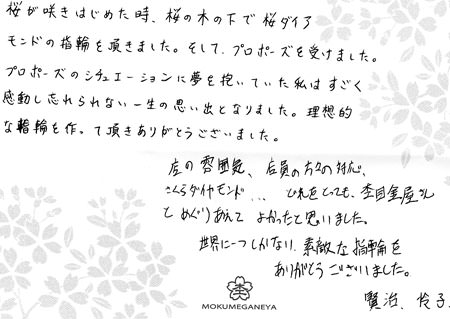 桜が咲きはじめた時、桜の木の下で桜ダイア
モンドの指輪を頂きました。そして、プロポーズを受けました。
プロポーズのシチュエーションに夢を抱いていた私はすごく
感動し忘れられない一生の思い出となりました。理想的
な指輪を作って頂きありがとうございました。
店の雰囲気、店員の方々の対応、
さくらダイヤモンド… どれをとっても、杢目金屋さん
とめぐりあえて よかったと思いました。
世界に一つしかない、素敵な指輪を
ありがとうございました。
賢治、
MOKUMEGANEYA